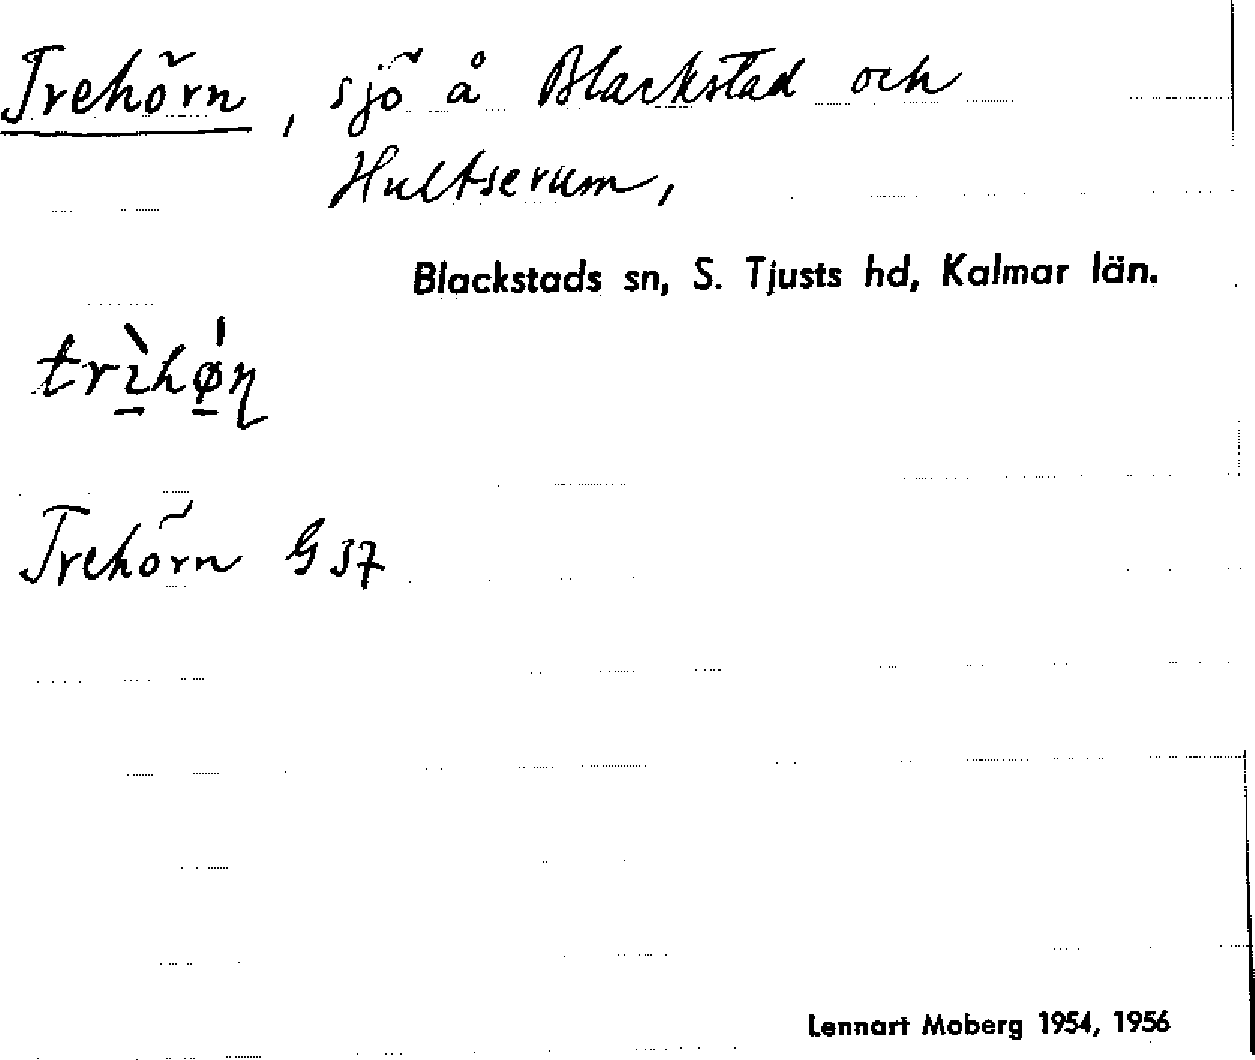 Trehörn, sjö å Blackstad och
Hultserum,
Blackstads sn, S. Tjusts hd, Kalmar län.
Trehörn G 37
Lennart Moberg 1954, 1956